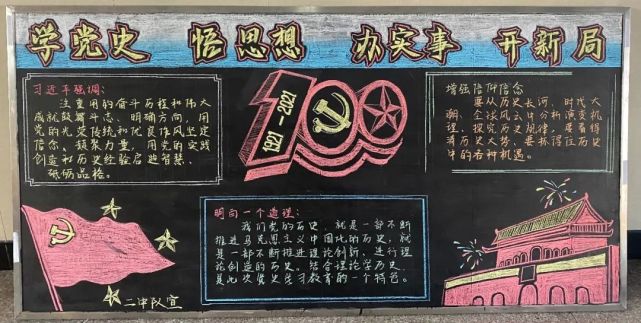 学党史 悟思想 办实事 开新局
习近平强调:
注重用的奋斗历程和伟大
成就鼓舞斗志、明确方向,用
党的光荣传统和优良作风坚定
信念、凝聚力量,用党的实践
创造和历史经验启迪智慧、
砥砺品格。
1921-2021
100
增强信仰信念
要从历史长河、时代大
潮、全球风云中分析演变机
理、探究历史规律,
清历史大势、要抓得住历史
中的各种机遇。
明向一个道理:
我们党的历史,就是一部不断
推进马克思主义中国化的历史,就
是一部不断推进理论创新、进行理
论创造的历史。结合理论学历史,
是此次党史学习教育的一个特色。
二中队宣